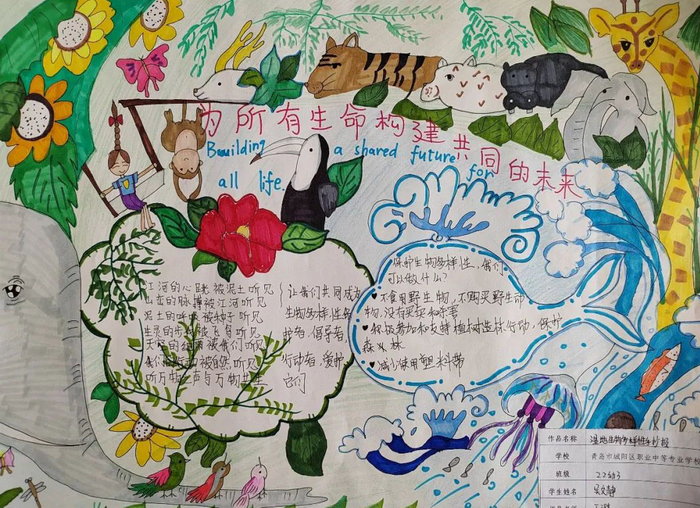 为所有生命构建共同的未来
Building a shared future for
all life.
江河的心跳被泥土听见
山峦的脉搏被江河听见
泥土的呼吸被种子听见
被飞鸟听见
被我们听见
我们 被自然听见
听万物之声与万物共生
让我们共同成为
生物多样性的
倡导者,
行动者,爱护
它们
保护生物多样性,我们
可以做什么?
不食用野生物,不购买野生动
物,没有买卖和杀害
积极参加和支持植树造林行动,保护
森林
减少使用塑料袋
作品名称 生物多样性手抄报
学校 青岛市城阳区职业中等专业学校
班级
学生姓名 吴文静